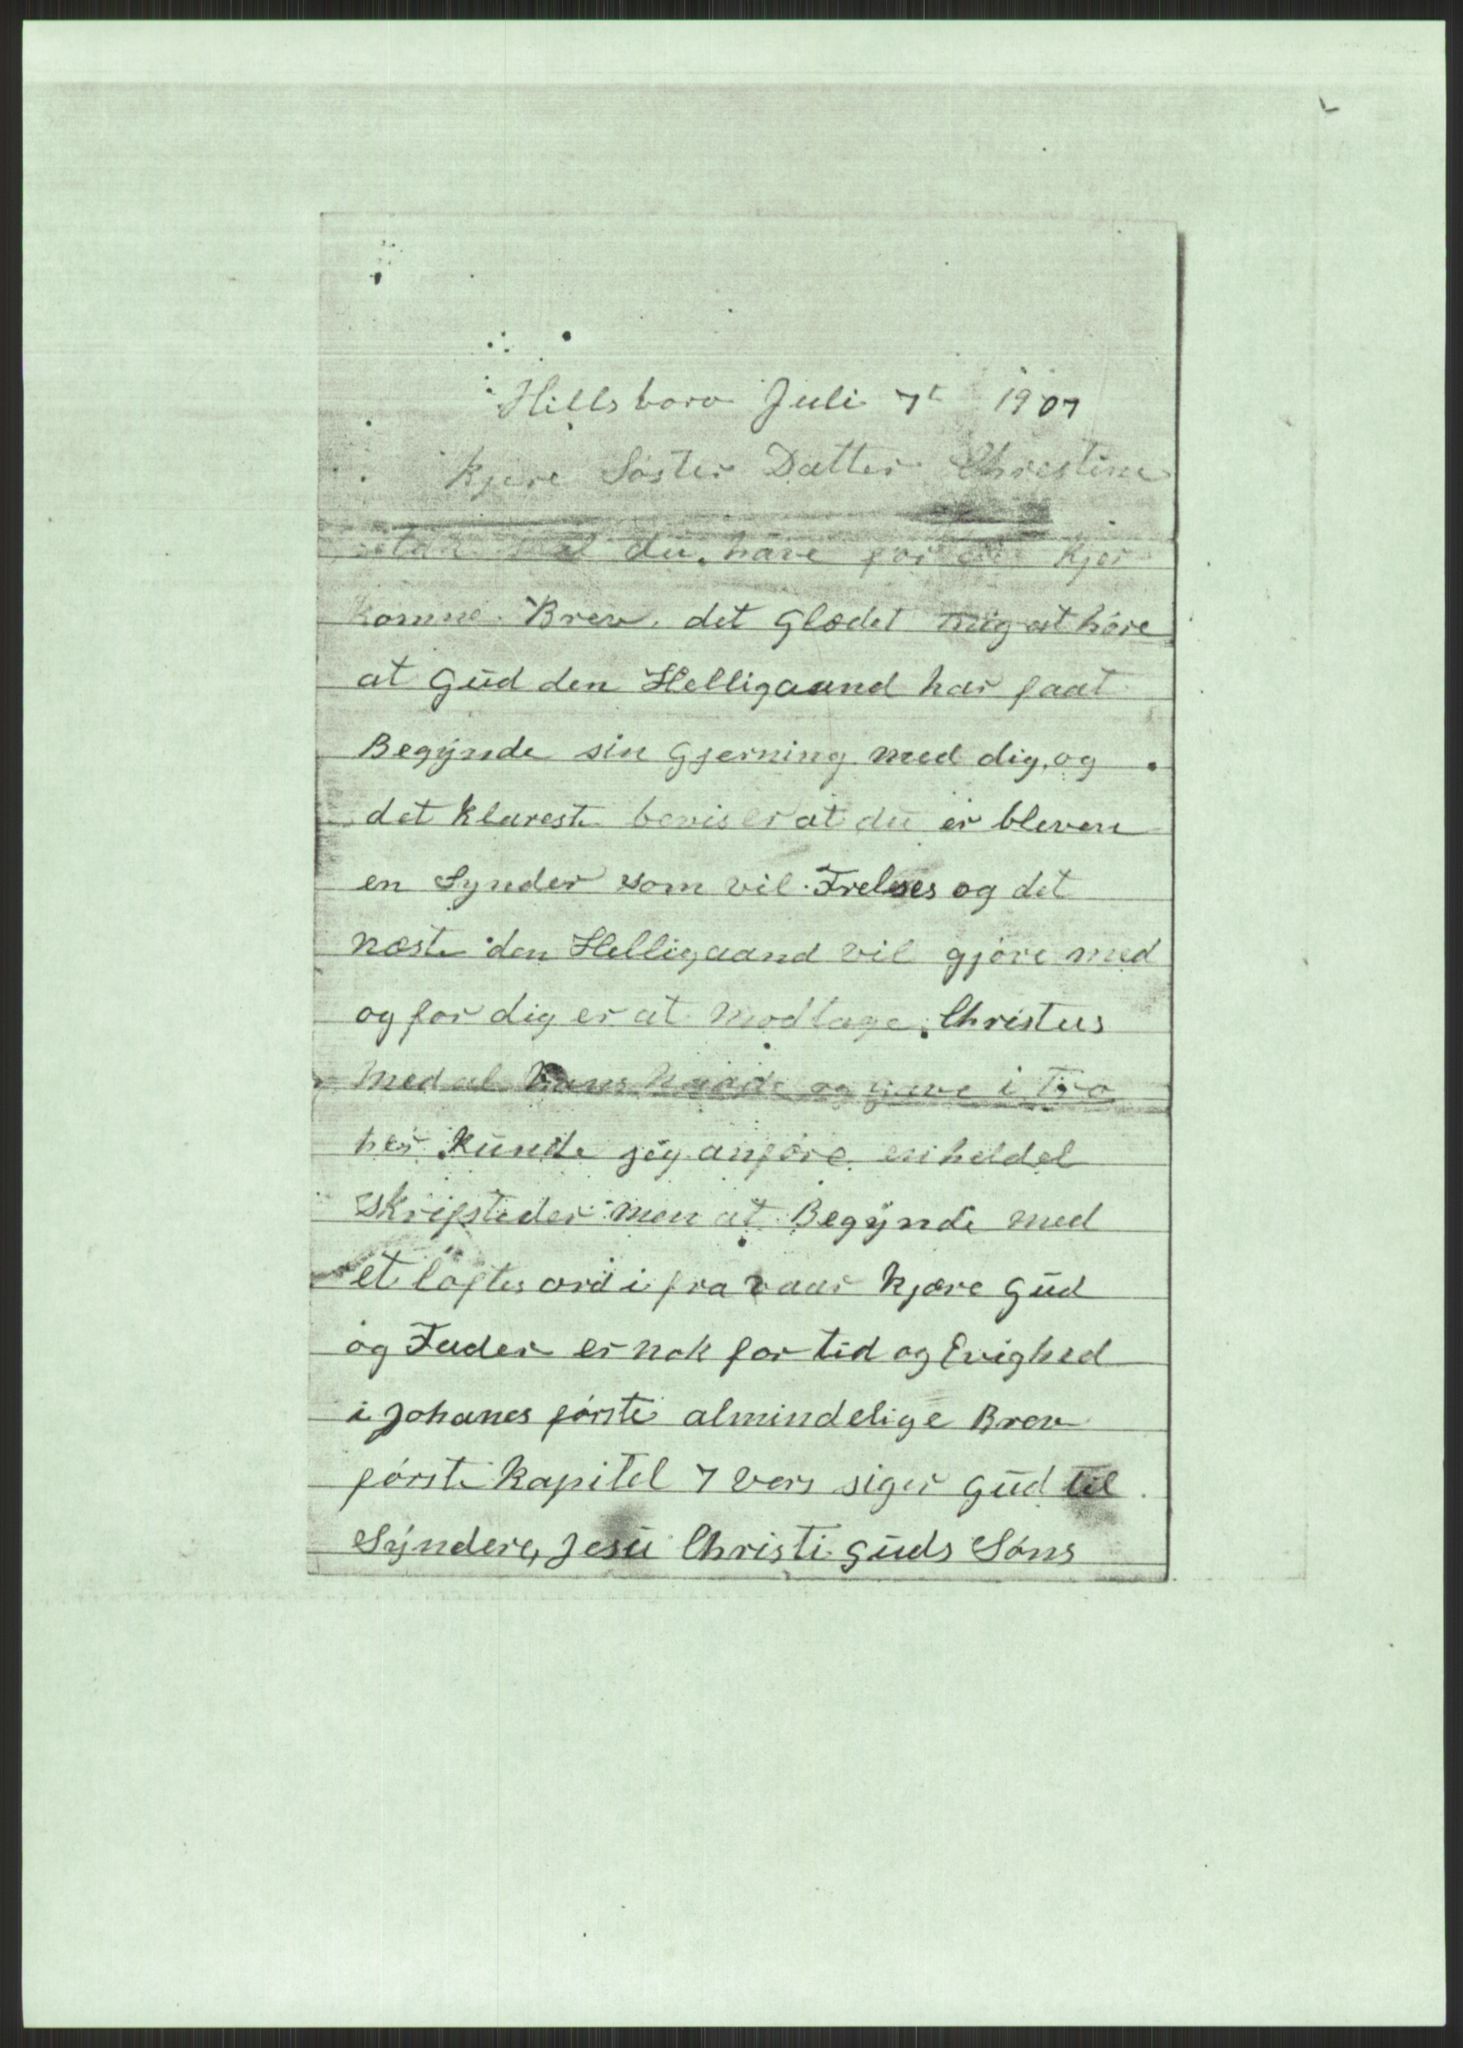 Hillsboro Juli 7t 1907
Kjere Søster Datter Chrestine
tak skal du have for dit kjer
komne Brev. det Glædet mig at høre
at Gud den Helligaand har faat
Begynde sin Gjerning med dig, og
det klareste bevis er at du er bleven
en Synder som vil Frelses og det
næste den Helligaand vil gjøre med
og for dig er at Modtage Christus
med al hans Naade og gave i Tro
her Kunde jeg anføre en heldel
Skripsteder men at Begynde med
et løftes ord i fra vaar Kjære Gud
og Fader er nok for tid og Evighed
i Johanes første almindelige Brev
første Kapitel 7 vers siger Gud til
Syndere, Jesu Christi Guds Søns